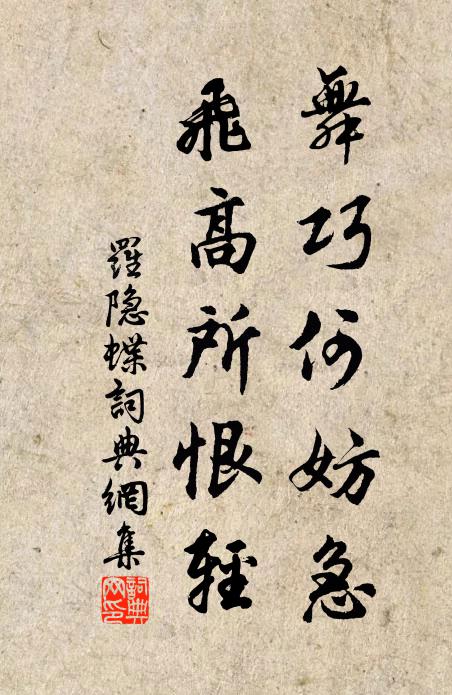 舞巧何妨急
飛高所恨輕
羅隐蝶詞典網集
詞典網印